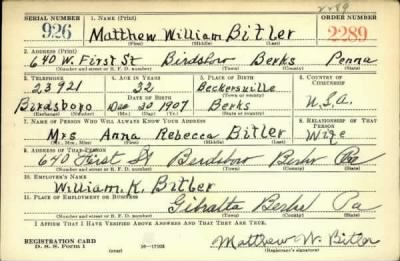 2289
SERIAL NUMBER 1. NAME (Print) ORDER NUMBER
926 Matthew William Bitler 2289
(First) (Middle) (Last)
2. ADDRESS (Print)
640 W. First St Birdsboro Berks Penna
(Number and street or R. F. D. number) (Town) (County) (State)
3. TELEPHONE 4. AGE IN YEARS 5. PLACE OF BIRTH 6. COUNTRY OF CITIZENSHIP
23921 32 Beckersville
DATE OF BIRTH (Town or county)
Birdsboro Dec 30 1907 Berks U.S.A.
(Exchange) (Number) (Mo.) (Day) (Yr.) (State or country)
7. NAME OF PERSON WHO WILL ALWAYS KNOW YOUR ADDRESS 8. RELATIONSHIP OF THAT PERSON
Mrs Anna Rebecca Bitler Wife
(Mr., Mrs., Miss) (First) (Middle) (Last)
9. ADDRESS OF THAT PERSON
640 First St Berdsboro Berks Pa
(Number and street or R. F. D. number) (Town) (County) (State)
10. EMPLOYER'S NAME
William K. Bitler
11. PLACE OF EMPLOYMENT OR BUSINESS
Gibralta Berks Pa
(Number and street or R. F. D. number) (Town) (County) (State)
I AFFIRM THAT I HAVE VERIFIED ABOVE ANSWERS AND THAT THEY ARE TRUE.
REGISTRATION CARD
D. S. S. Form 1 (over) 16—17105 Matthew W. Bitler
(Registrant's signature)